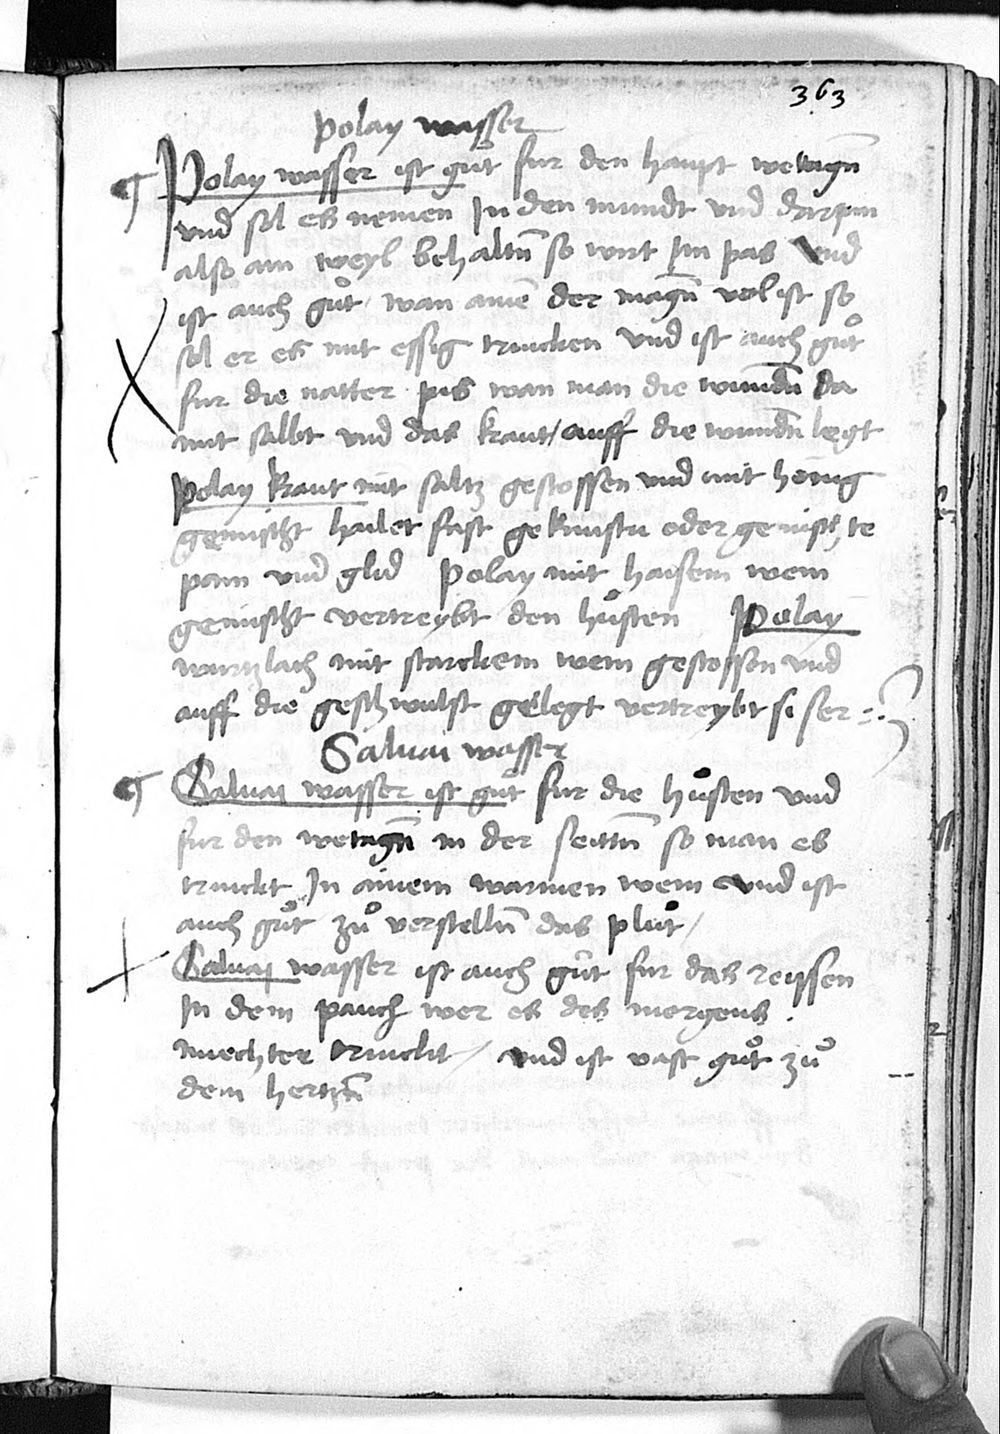 363
polay wasser
¶ Polay wasser ist gůt fur den haupt wetagñ
vnd sol es nemen In den mundt vnd darynn
also ain weyl behaltñ so wirt Im pas vnd
ist auch gůt / wan ainē der magñ vol ist so
sol er es mit essig trincken vnd ist auch gůt
fur die natter pis wan man die wundñ da
mit salbt vnd das kraut / auff die wundñ legt
polay kraut mit saltz gestossen vnd mit honig
gemischt hailet fast
pain vnd glid polay mit haisem wein
gemischt vertreybt den hůsten Polay
wurtzlach mit starckem wein gestossen vnd
auff die geschwulst gelegt vertreybt si ser
Saluai wasser
¶ Saluaj wasser ist gůt fur die hůsten vnd
fur den wetagñ in der seittñ so man es
trinckt In ainem warmen wein vnd ist
auch gůt zů verstellñ das plůt /
Saluaj wasser ist auch gůt fur das reyssen
In dem pauch wer es des morgens
nuechter trinckt / vnd ist vast gůt zů
dem hertzñ